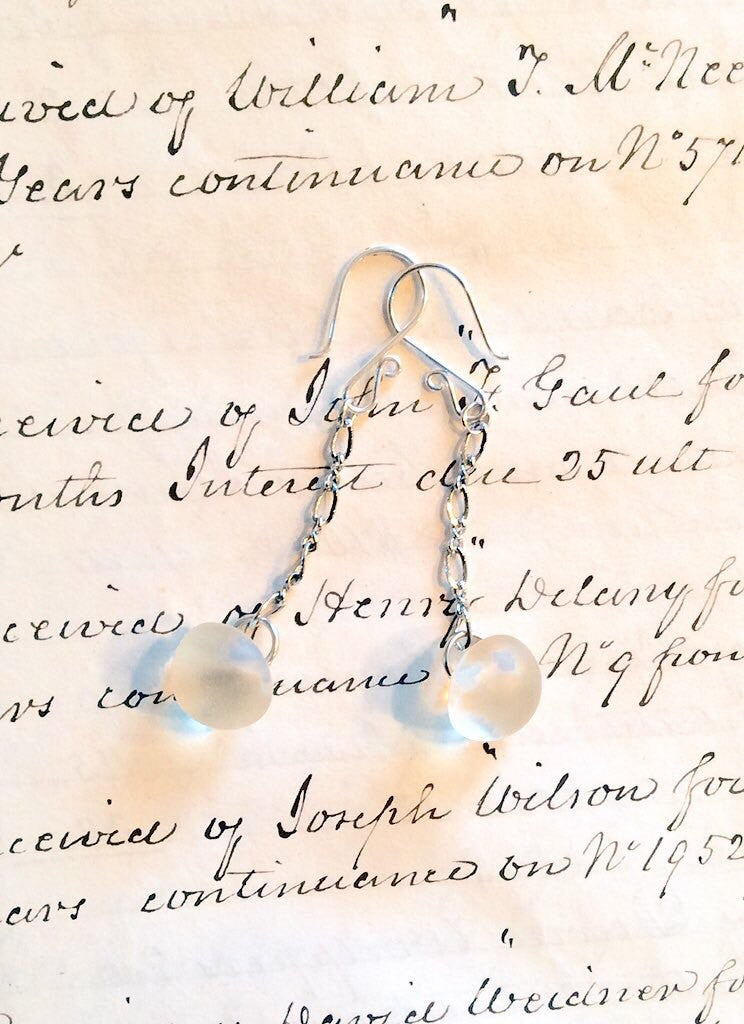 eived of William " T. McNee
Years continuance on No 571
ceivid of John " F. Gaul fo
onths Interest due 25 ult
ceivid of Henry " Delany fo
rs con uance No 9 from
ceivid of Joseph " Wilson for
ears continuance on No 1952
David " Weidner fo